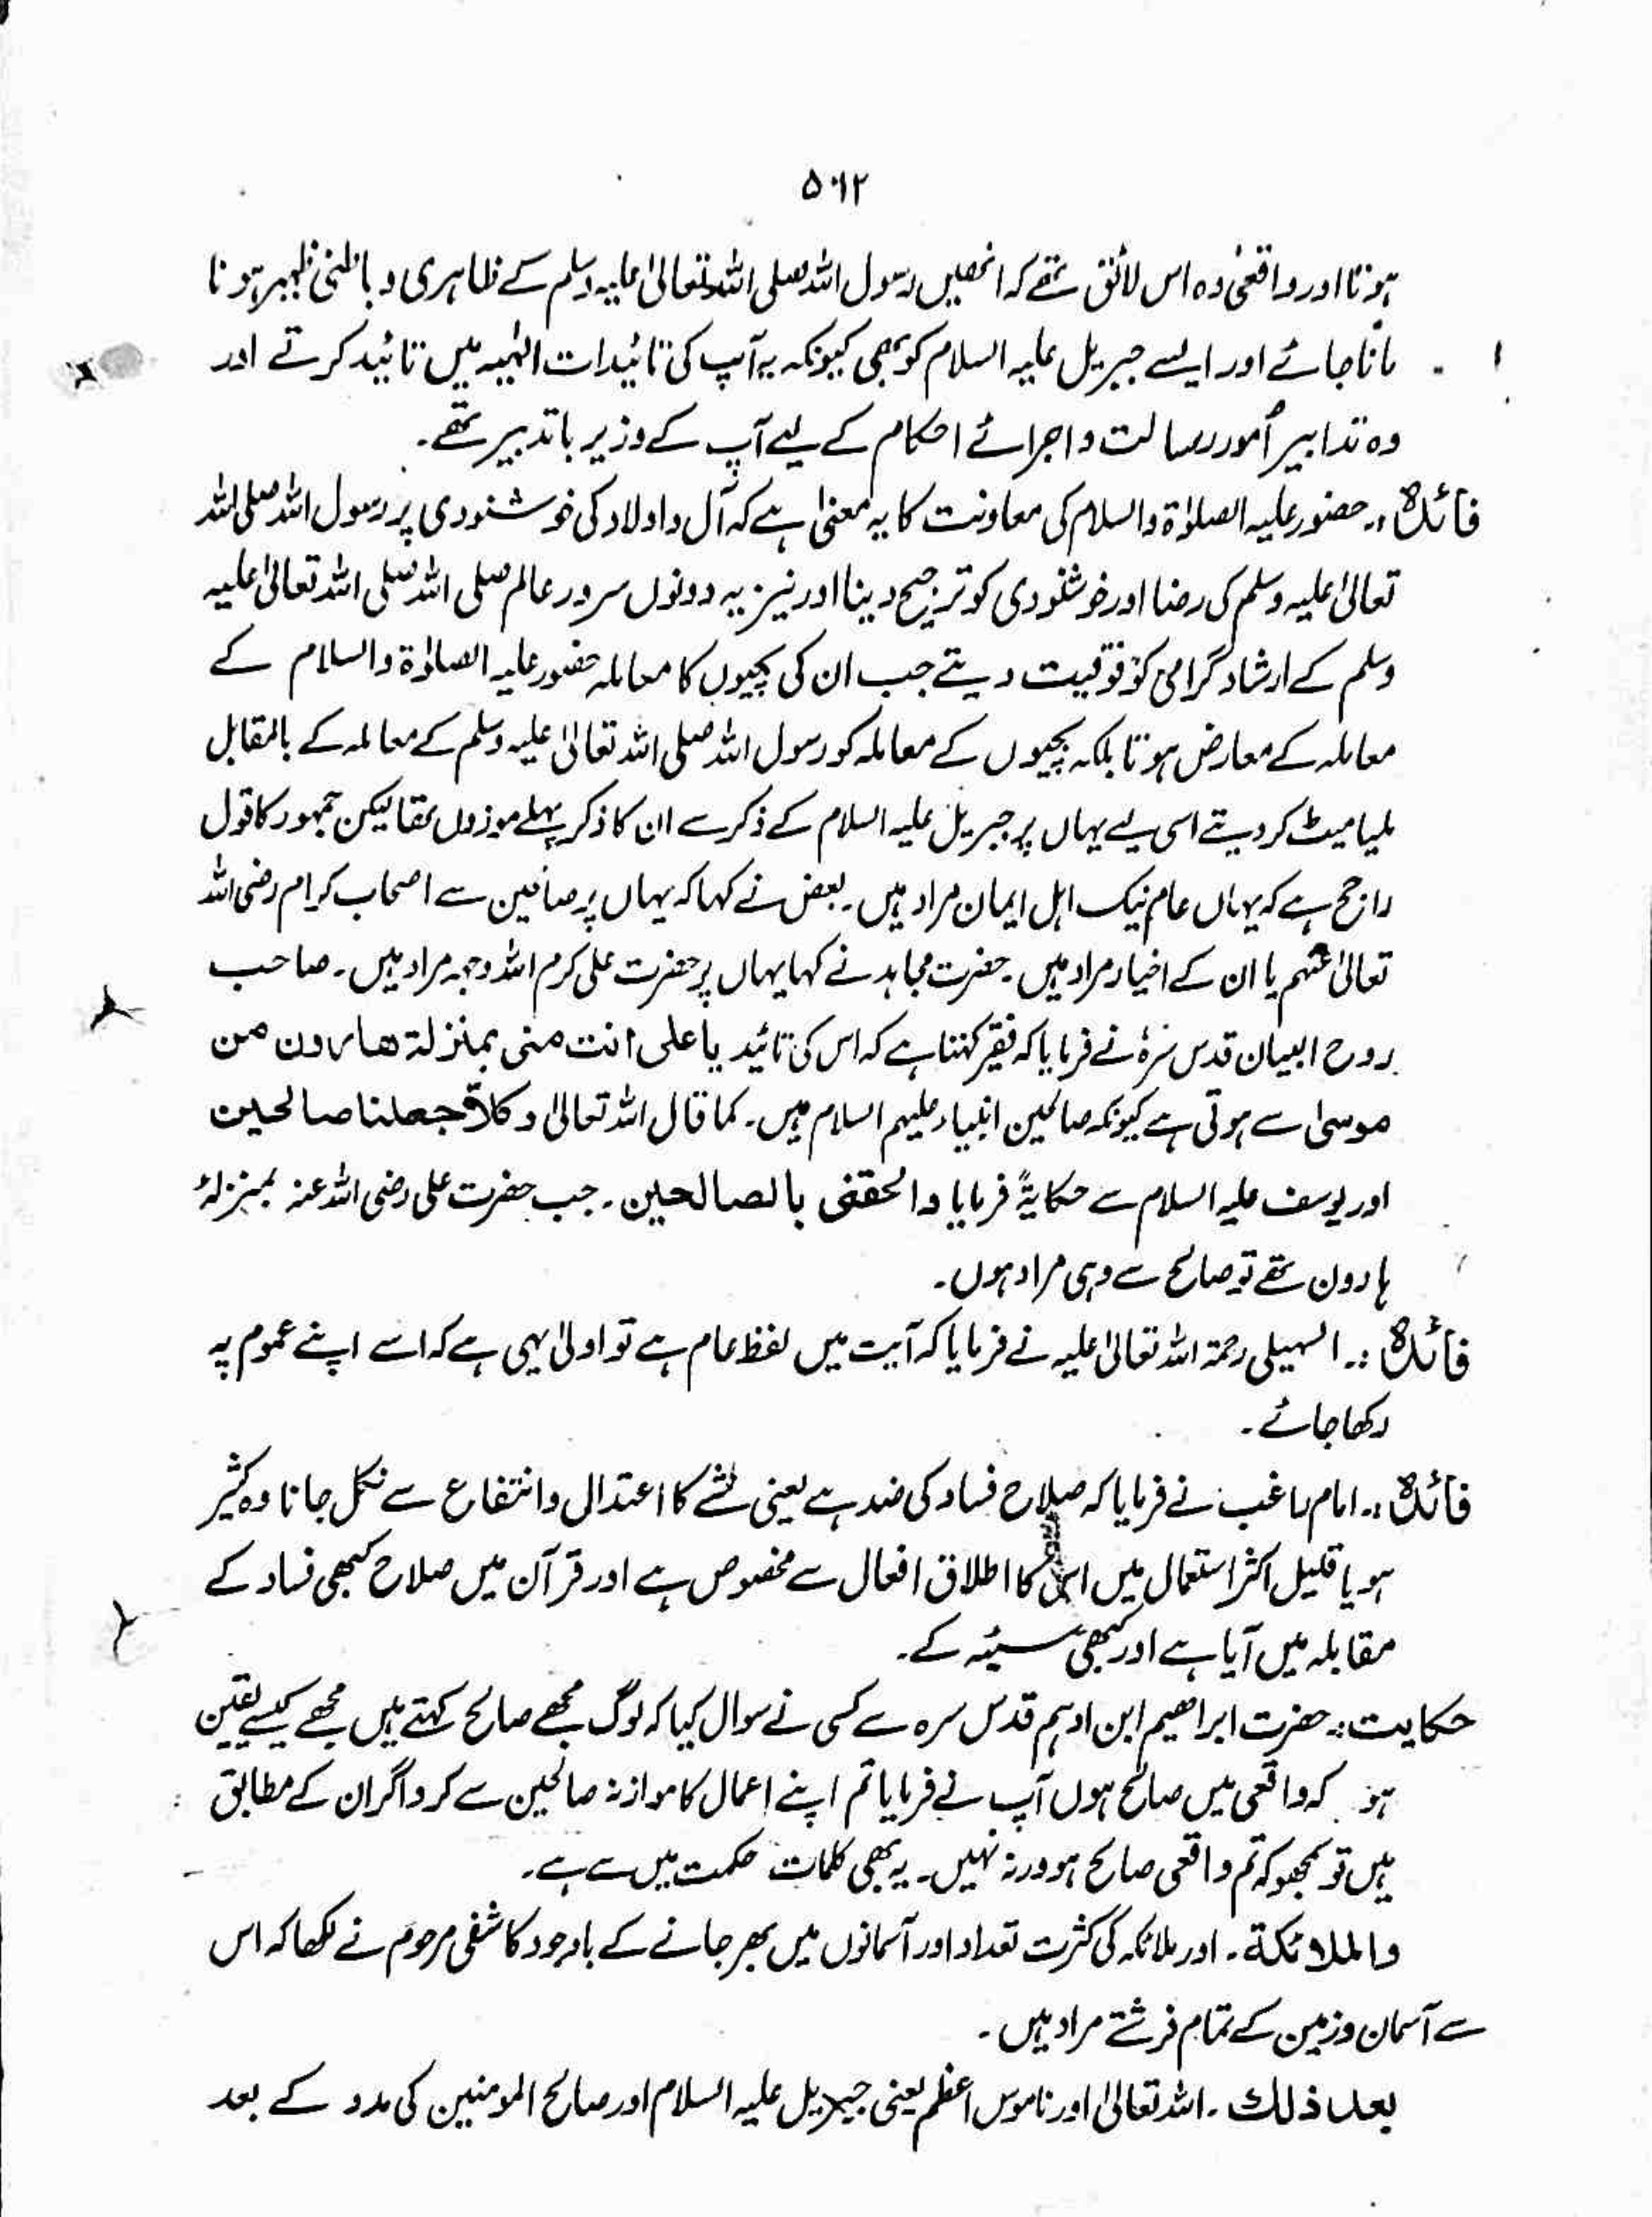 ۵۶۲
ہوتا اور واقعی وہ اس لائق تھے کہ انھیں رسول اللہ صلی اللہ تعالیٰ علیہ وسلم کے ظاہری و باطنی ظہیر ہونا
مانا جائے اور ایسے جبریل علیہ السلام کو بھی کیونکہ یہ آپ کی تائیدات الٰہیہ میں تائید کرتے اور
وہ تدابیر اُمور رسالت و اجرائے احکام کے لیے آپ کے وزیر باتدبیر تھے۔
فائدہ :۔ حضور علیہ الصلوٰۃ والسلام کی معاونت کا یہ معنیٰ ہے کہ آل و اولاد کی خوشنودی پر رسول اللہ صلی اللہ
تعالیٰ علیہ وسلم کی رضا اور خوشنودی کو ترجیح دینا اور نیز یہ دونوں سرور عالم صلی اللہ صلی اللہ تعالیٰ علیہ
وسلم کے ارشاد گرامی کو فوقیت دیتے جب ان کی بچیوں کا معاملہ حضور علیہ الصلوٰۃ والسلام کے
معاملہ کے معارض ہوتا بلکہ بچیوں کے معاملہ کو رسول اللہ صلی اللہ تعالیٰ علیہ وسلم کے معاملہ کے بالمقابل
ملیامیٹ کر دیتے اسی لیے یہاں پر جبریل علیہ السلام کے ذکر سے ان کا ذکر پہلے موزوں تھا لیکن جمہور کا قول
راجح ہے کہ یہاں عام نیک اہل ایمان مراد ہیں۔ بعض نے کہا کہ یہاں پر صالحین سے اصحاب کرام رضی اللہ
تعالیٰ عنہم یا ان کے اخیار مراد ہیں۔ حضرت مجاہد نے کہا یہاں پر حضرت علی کرم اللہ وجہہ مراد ہیں۔ صاحب
روح البیان قدس سرہٗ نے فرمایا کہ فقیر کہتا ہے کہ اس کی تائید یا علی انت منی بمنزلۃ ھارون من
موسیٰ سے ہوتی ہے کیونکہ صالحین انبیاء علیہم السلام ہیں۔ کما قال اللہ تعالیٰ و کلاً جعلنا صالحین
اور یوسف علیہ السلام سے حکایۃً فرمایا والحقنی بالصالحین۔ جب حضرت علی رضی اللہ عنہ بمنزلۂ
ہارون تھے تو صالح سے وہی مراد ہوں۔
فائدہ :۔ السہیلی رحمۃ اللہ تعالیٰ علیہ نے فرمایا کہ آیت میں لفظ عام ہے تو اولیٰ یہی ہے کہ اسے اپنے عموم پہ
رکھا جائے۔
فائدہ :۔ امام راغب نے فرمایا کہ صلاح فساد کی ضد ہے یعنی شے کا اعتدال و انتفاع سے نکل جانا وہ کثیر
ہو یا قلیل اکثر استعمال میں اس کا اطلاق افعال سے مخصوص ہے اور قرآن میں صلاح کبھی فساد کے
مقابلہ میں آیا ہے اور کبھی سیئہ کے۔
حکایت :۔ حضرت ابراھیم ابن ادہم قدس سرہ سے کسی نے سوال کیا کہ لوگ مجھے صالح کہتے ہیں مجھے کیسے یقین
ہو کہ واقعی میں صالح ہوں آپ نے فرمایا تم اپنے اعمال کا موازنہ صالحین سے کرو اگر ان کے مطابق
ہیں تو سمجھو کہ تم واقعی صالح ہو ورنہ نہیں۔ یہ بھی کلمات حکمت میں سے ہے۔
والملائکۃ۔ اور ملائکہ کی کثرت تعداد اور آسمانوں میں بھر جانے کے باوجود کاشفی مرحوم نے لکھا کہ اس
سے آسمان و زمین کے تمام فرشتے مراد ہیں۔
بعد ذلک۔ اللہ تعالیٰ اور ناموس اعظم یعنی جبریل علیہ السلام اور صالح المومنین کی مدد کے بعد